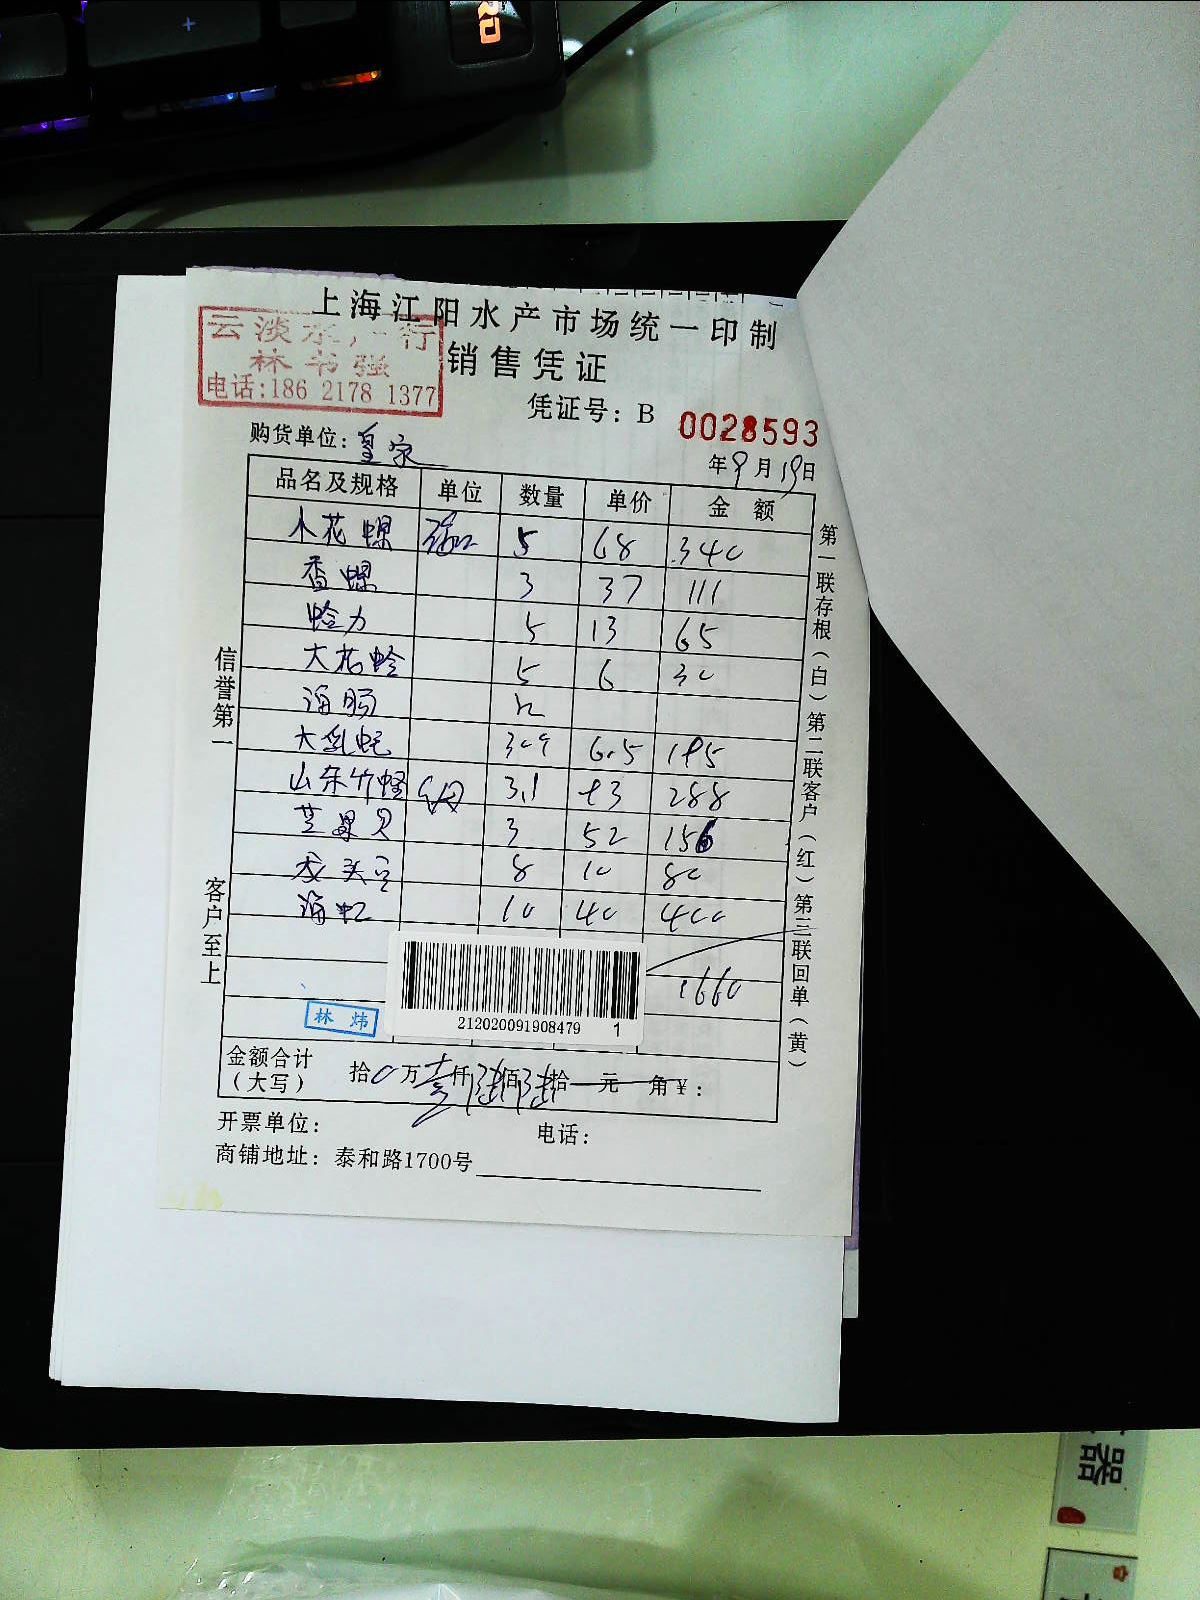 上海江阳水产市场统一印制
云淡水产行
林书强
电话:186 2178 1377
销售凭证
凭证号：B 0028593
购货单位：皇家
年9月19日
品名及规格 单位 数量 单价 金额
小花螺 5 68 340
香螺 3 37 111
蛤力 5 13 65
大花蛤 5 6 30
海肠
大乳蚝 6.5 195
山东竹蛏 3.1 93 288
芒果贝 3 52 156
龙头 8 10 80
海虹 10 40 400
1660
212020091908479 1
林炜
金额合计（大写） 拾0万壹仟陆佰陆拾元角¥：
开票单位： 电话：
商铺地址：泰和路1700号
信誉第一
客户至上
第一联存根（白）第二联客户（红）第三联回单（黄）
器